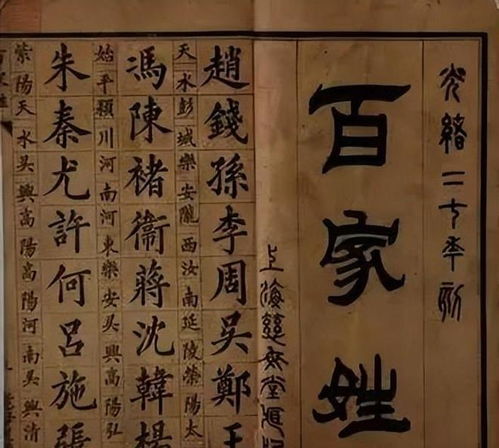 光緒二年刻
百家姓
上海慈母堂
趙錢孫李周吳鄭王
天水彭城樂安隴西汝南延陵滎陽太
馮陳褚衛蔣沈韓楊
始平潁川河南河東樂安吳興南陽弘
朱秦尤許何呂施張
天水吳興高陽河南吳興清